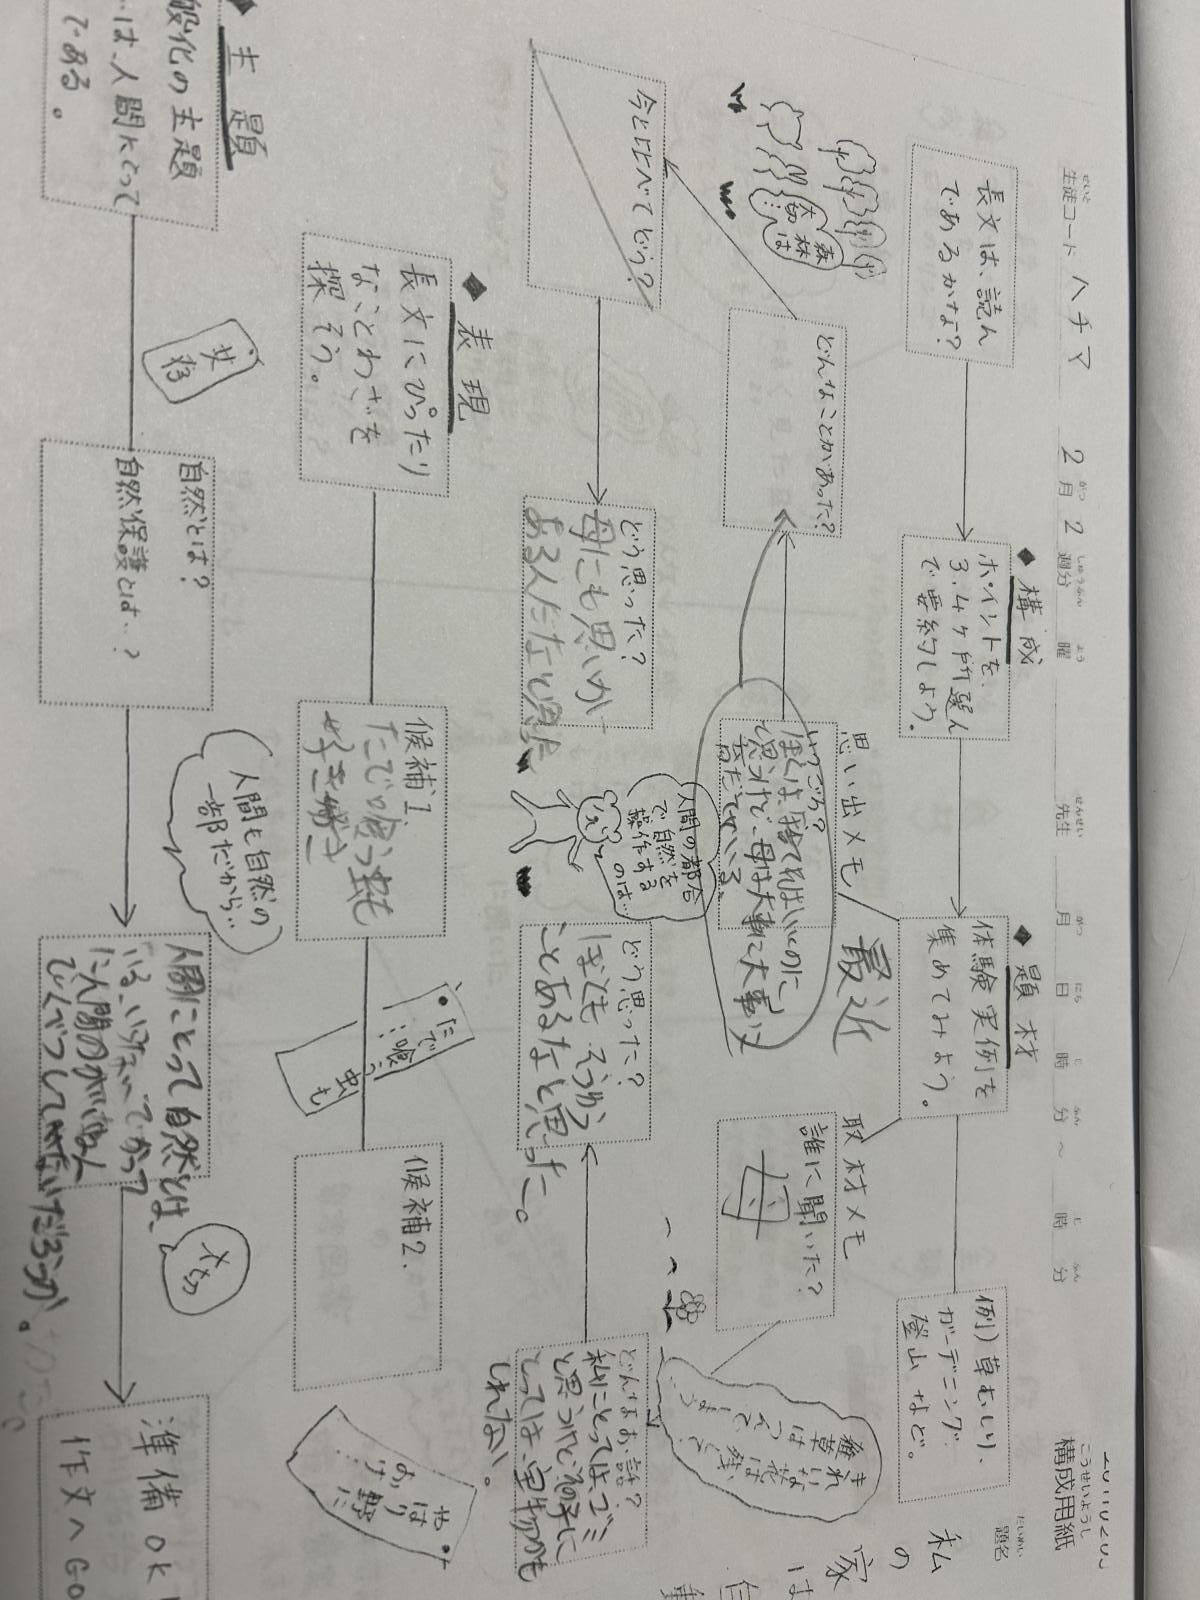 構成用紙
こうせいようし
生徒コード ハチマ 2月2週分 曜 先生 月 日 時 分 〜 時 分
せいと がつ しゅうぶん よう せんせい がつ にち じ ふん じ ふん
題名
だいめい
私の家は
長文は、読んであるかな？
◆構成
ポイントを、
3.4ヶ所選んで要約しよう。
◆題材
体験実例を
集めてみよう。
例）草むしり、
ガーデニング
登山など。
思い出メモ
最近
いつごろ？
ぼくは、捨てればいいのに
て思うけど、母は大事に大事に
どんなことがあった？
森林は
大切
…
今と比べてどう？
どう思った？
母にも思いが
ある人だなと思った
人間の都合
で自然を
操作する
のは…
取材メモ
誰に聞いた？
母
きれい
な花は残して、
雑草は
どんなお話？
私にとっては、ゴミ
と思うけど その子に
とっては、宝物かも
しれない。
どう思った？
ぼくも そうゆう
ことあるなと思った。
◆表現
長文にぴったり
なことわざを
探そう。
候補1.
たで喰う虫も
好き好き
たで
喰う
虫も
候補2.
やはり
野に
◆主題
一般化の主題
…は、人間にとって
である。
共存
自然とは？
自然保護とは‥？
人間も自然の
一部だから‥
人間にとって自然とは、
大切
準備OK
作文へGO